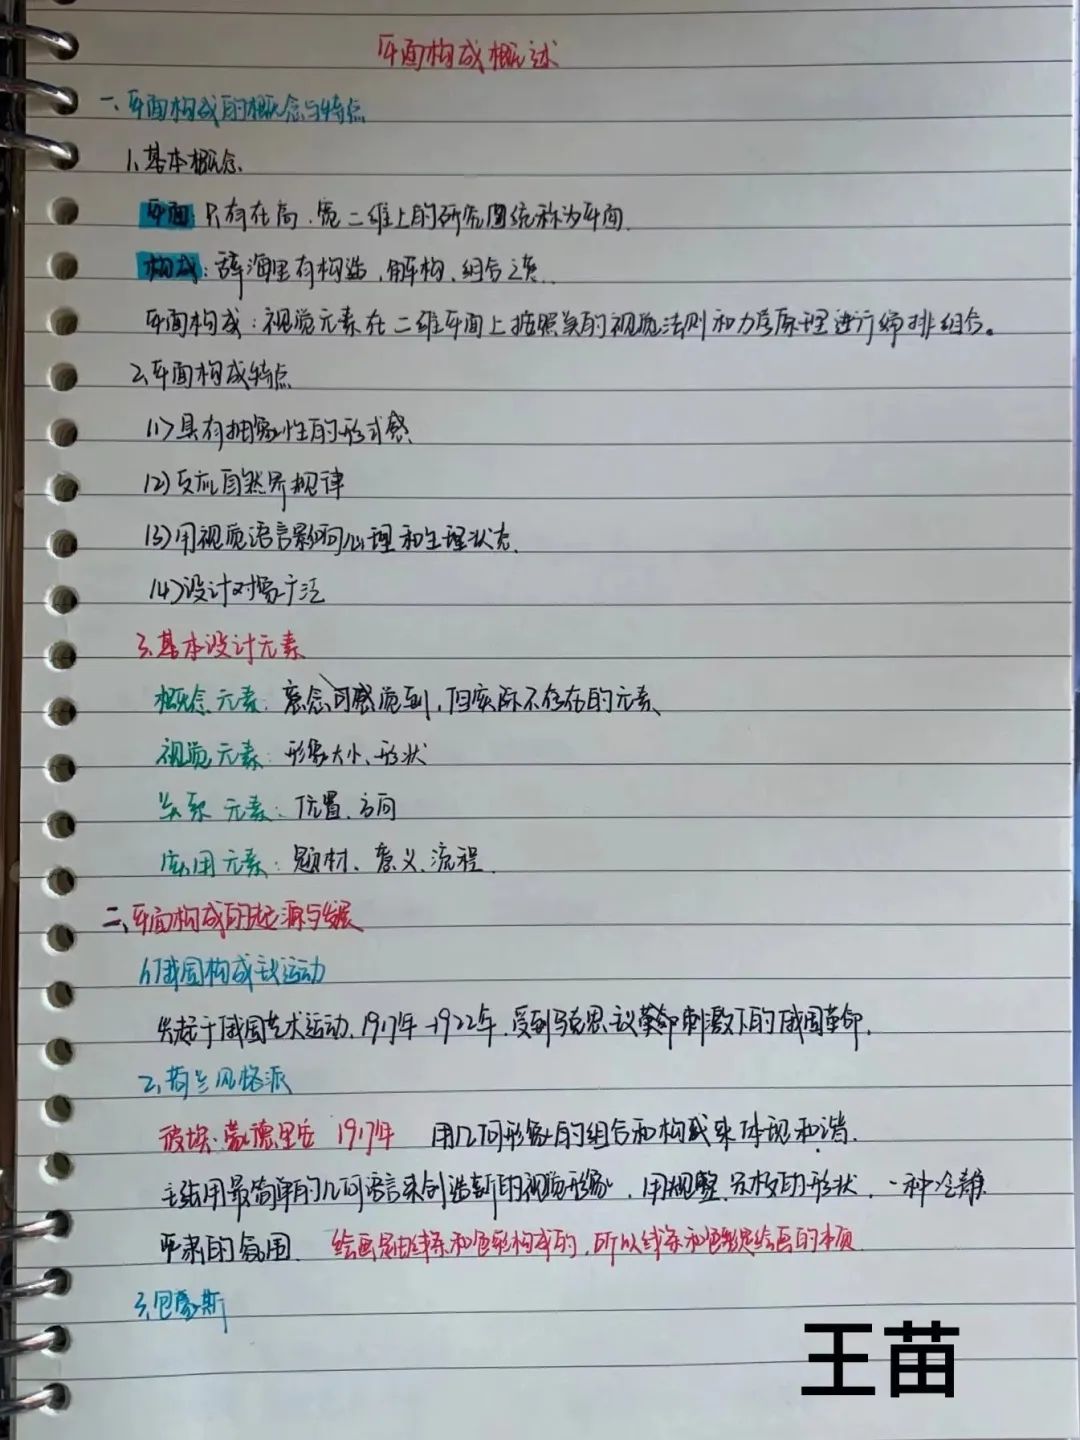 平面构成概述
一、平面构成的概念与特点
1、基本概念
平面：只存在高、宽二维上的研究图统称为平面
构成：辞海里有构造、解构、组合之意
平面构成：视觉元素在二维平面上按照美的视觉法则和力学原理进行编排组合。
2、平面构成特点
(1)具有抽象性的形式感
(2)反应自然界规律
(3)用视觉语言影响心理和生理状态
(4)设计对象广泛
3、基本设计元素
概念元素：意念可感觉到，但实际不存在的元素
视觉元素：形象大小、形状
关系元素：位置、方向
应用元素：题材、意义、流程
二、平面构成的起源与发展
1、俄国构成主义运动
兴起于俄国艺术运动，1917年-1922年，受到马克思主义革命刺激下的俄国革命.
2、荷兰风格派
彼埃·蒙德里安 1917年 用几何形象的组合和构成来体现和谐.
主张用最简单的几何语言来创造新的视觉形象，用规整、的形状，一种冷
的氛围. 绘画是由线条和色彩构成的，所以线条和色彩是绘画的本质
3、包豪斯
王苗